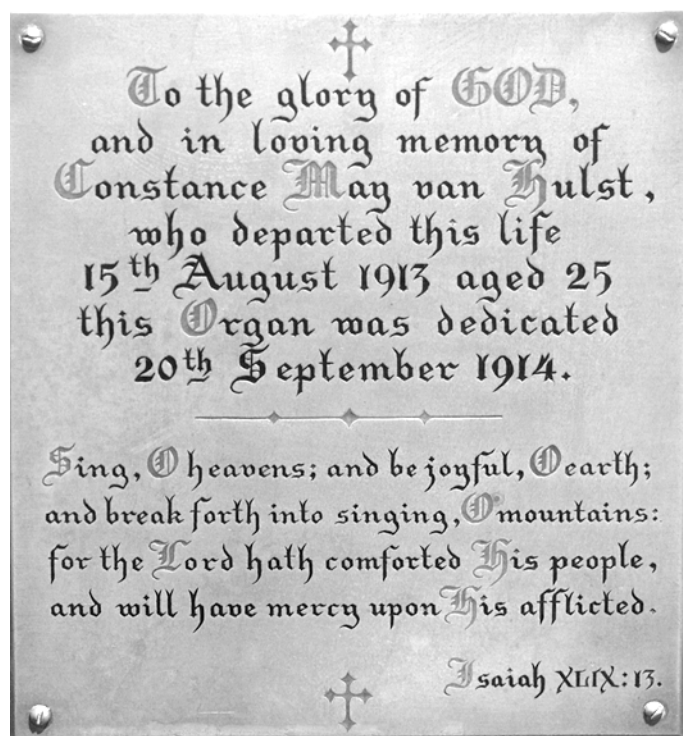 To the glory of GOD,
and in loving memory of
Constance May van Hulst,
who departed this life
15th August 1913 aged 25
this Organ was dedicated
20th September 1914.
Sing, O heavens; and be joyful, O earth;
and break forth into singing, O mountains:
for the Lord hath comforted His people,
and will have mercy upon His afflicted.
Isaiah XLIX:13.